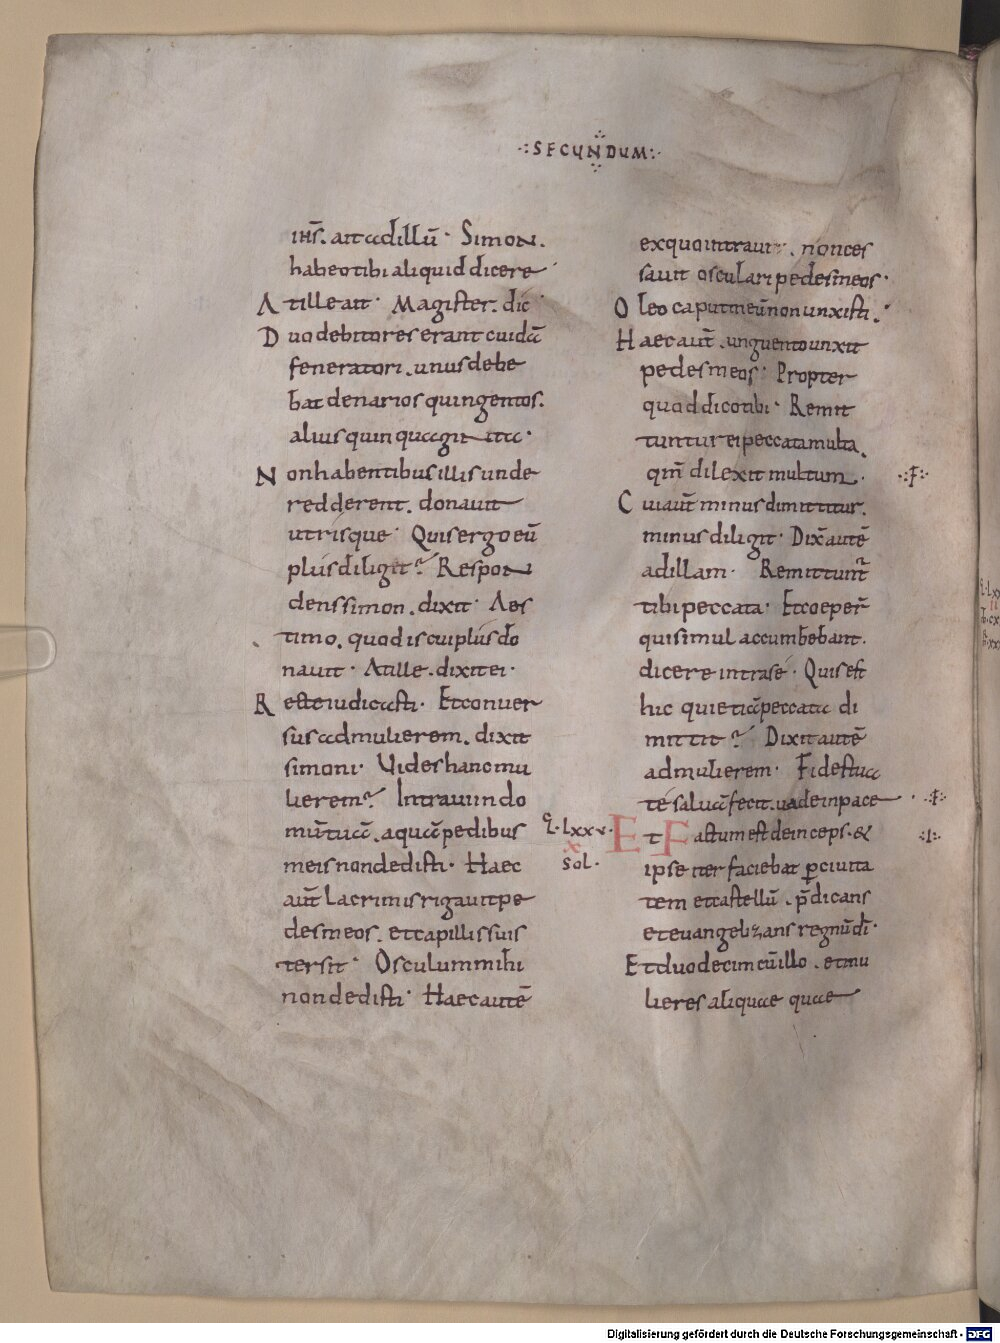 ·:SECUNDUM:·
ihs̄. ait adillū· Simon.
habeotibi aliquid dicere
Atilleait· Magister. dic·
Duodebitores erant cuidā
feneratori. unusdebe
bat denarios quingentos.
alius quinquaginta·
Nonhabentibusillis unde
redderent. donauit
utrisque· Quisergo eū
plusdiliget? Respon
denssimon. dixit· Aes
timo. quod iscuiplusdo
nauit· Atille. dixitei·
Recteiudicasti· Etconuer
sus admulierem. dixit
simoni· Uideshancmu
lierem? Intrauiindo
mūtuā. aquāpedibus
meisnondedisti· Haec
aūt lacrimis rigauitpe
desmeos. etcapillissuis
tersit· Osculummihi
nondedisti· Haecautē
exquointrauit. nonces
sauit osculari pedesmeos·
Oleo caputmeūnonunxisti.
Haecaut̄. unguentounxit
pedesmeos· Propter
quoddicotibi· Remit
tuntureipeccatamulta.
qm̄ dilexit multum. ·:F:·
Cuiaut̄minusdimittitur.
minusdiligit· Dixit̄autē
adillam· Remittunt̄
tibipeccata· Etcoeper̄
quisimulaccumbebant.
dicere intrase· Quisest
hic quietiāpeccata di
mittit? Dixitautē
admulierem· Fidestua
tesaluāfecit. uadeinpace ·:F:·
q̄·Lxxv· Et Factumestdeinceps· & ·:I:·
x
Sol·
ipse iterfaciebat p̄ciuita
tem etcastellū. p̄dicans
eteuangelizans regnūdī·
Etduodecimcūillo. etmu
lieresaliquae quae